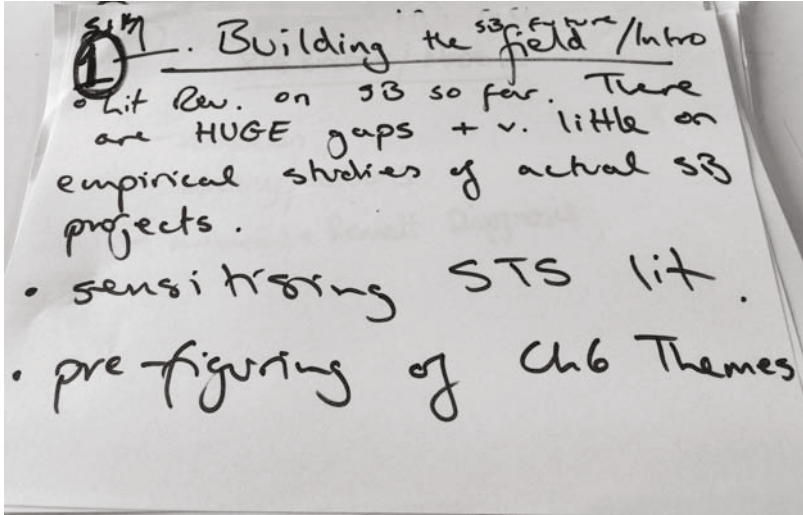 1. Building the SB future field/Intro
• Lit Rev. on SB so far. There
are HUGE gaps + v. little on
empirical studies of actual SB
projects.
• sensitising STS lit.
• pre-figuring of Ch6 Themes